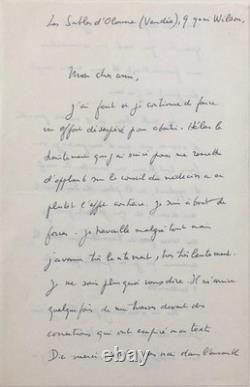 Les Sables d'Olonne (Vendée), 9 quai Wilson,
Mon cher ami,
J'ai fait et je continue de faire
un effort désespéré pour aboutir. Hélas le
traitement que j'ai suivi pour me remettre
d'aplomb sur le conseil du médecin a eu
plutôt l'effet contraire. Je suis à bout de
forces. Je travaille malgré tout mais
j'avance très lentement, très très lentement.
Je ne sais plus quoi vous dire. Il m'arrive
quelquefois de me trouver devant des
corrections qui ont empiré mon texte.
Dieu merci dans l'ensemble
© www.picclick.fr